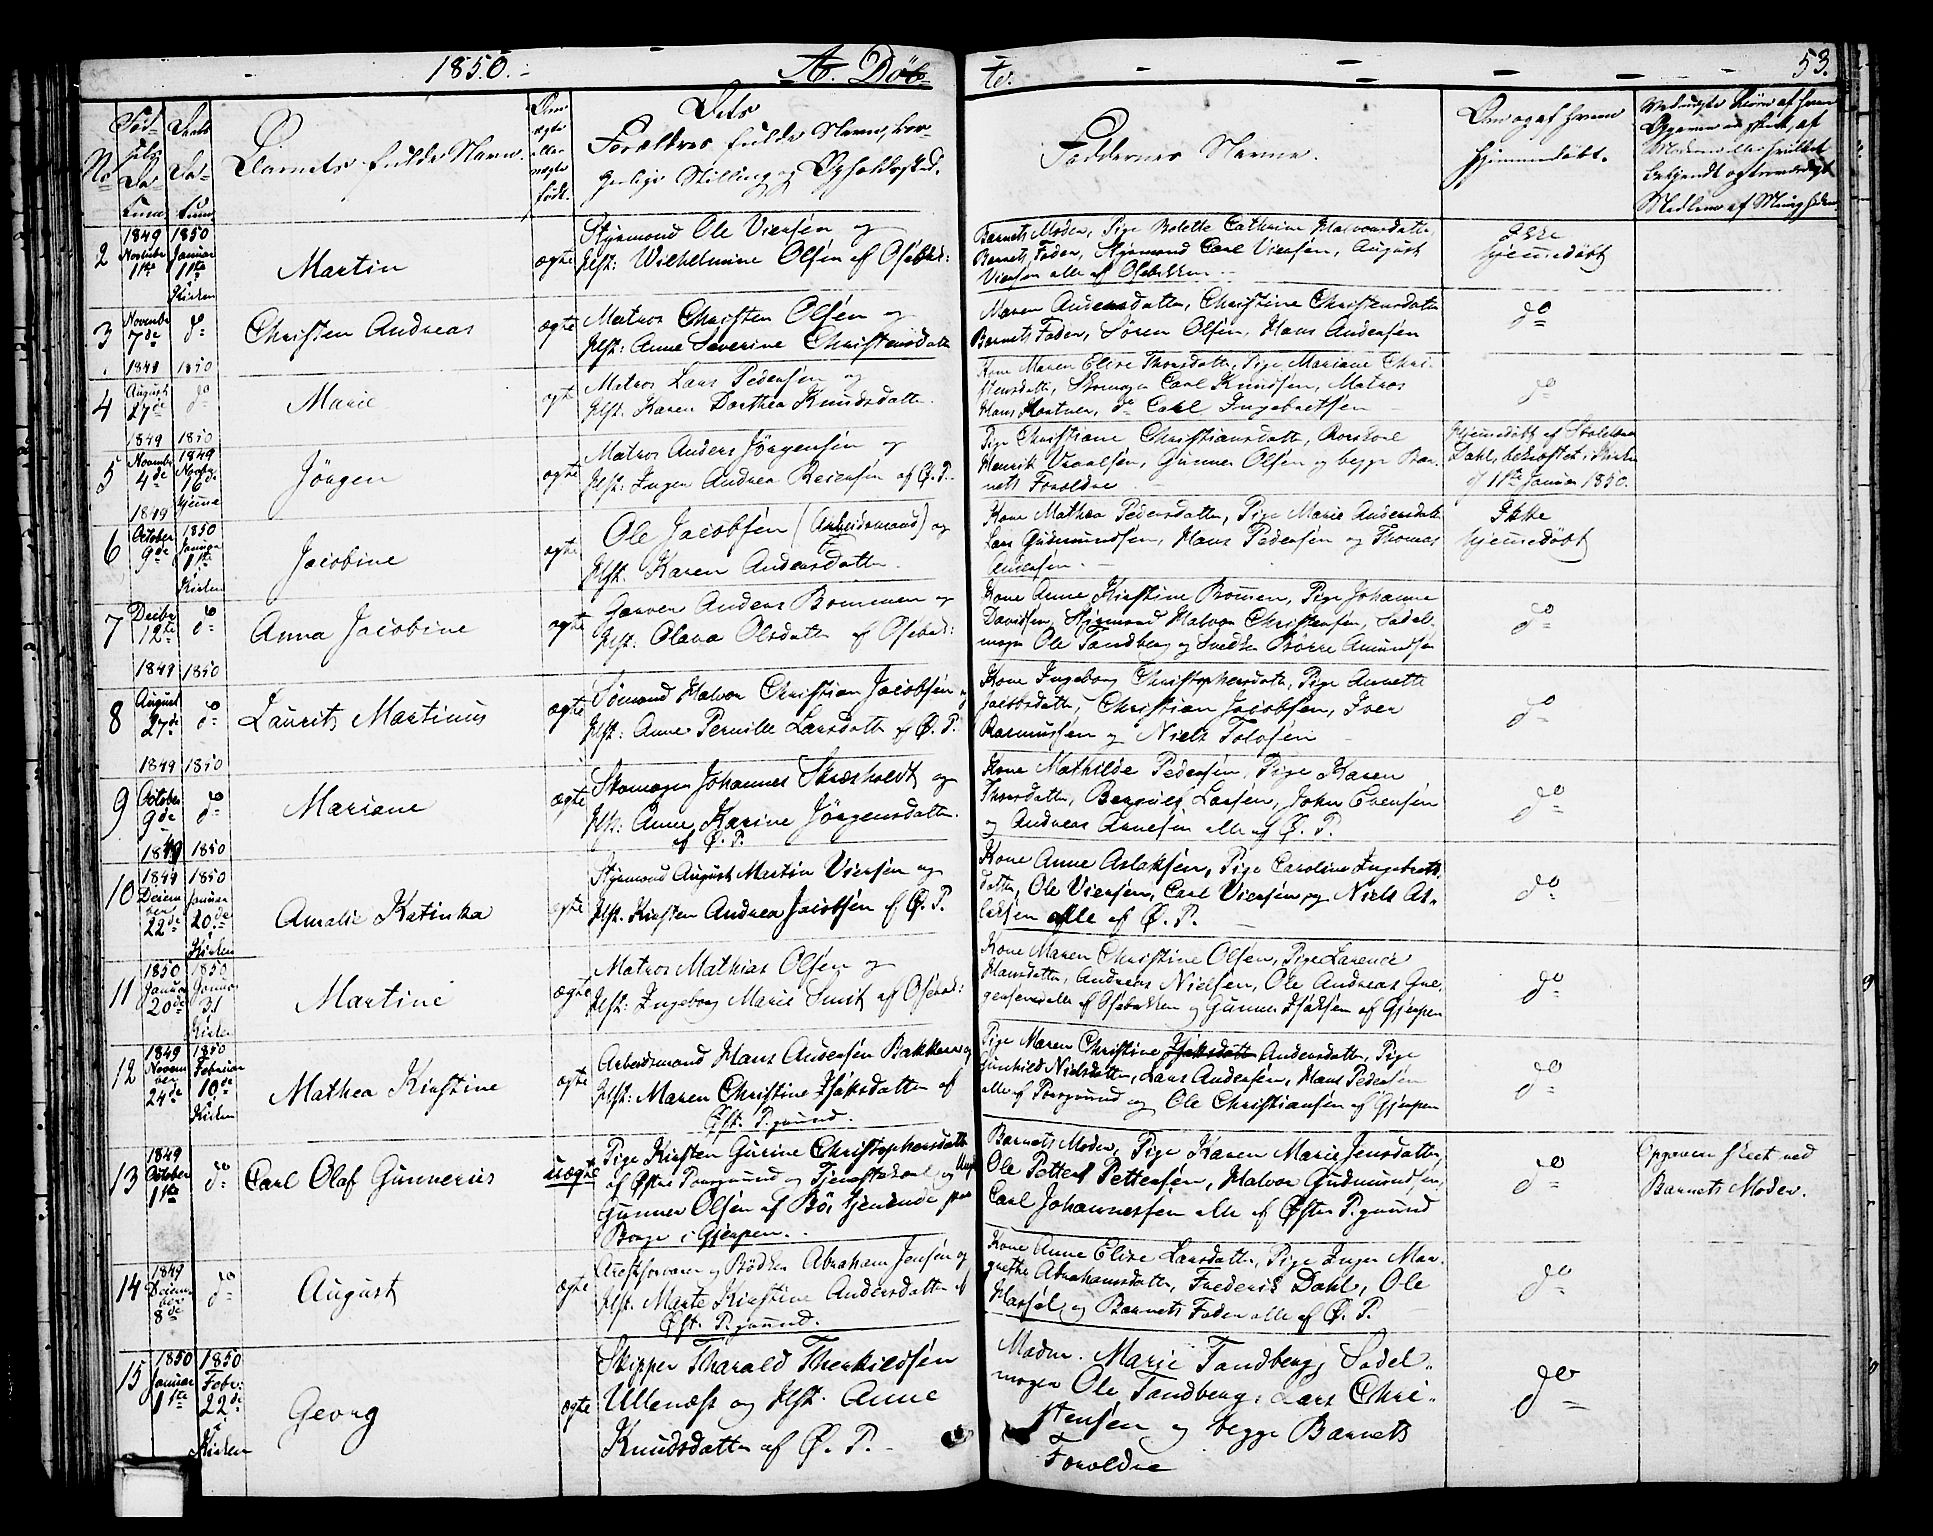 1850.
A. Døb-
te.
53.
No
Fød-
sels
Da-
tum
Daabs
Da-
tum
Barnets fulde Navn.
Om
ægte
eller
uægte
født.
Dets
Forældres fulde Navn, bor-
gerlige Stilling og Opholdssted.
Faddernes Navne.
Om og af hvem
hjemmedøbt.
2
1849
1ste
1850
Januar
1ste
i
Kirken
Martin
ægte
Styrmand Ole Viersen og
Hst: Wilhelmine Olsen af Osebak:
Barnets Moder, Pige Bolette Cathrine Halvorsdatter,
Barnets Fader, Styrmand Carl Viersen, August
Viersen alle af Osebakken
Ikke
hjemmedøbt
3
Novembr
7de
1849
do
1850
Christen Andreas
ægte
Matros Christen Olsen og
Hst: Anne Severine Christensdatter
Maren Andersdatter, Christine Christensdatter
Barnets Fader, Søren Olsen, Hans Andersen
do
4
August
27de
1849
do
1850
Marie
ægte
Matros Lars Pedersen og
Hst: Karen Dorthea Knudsdatter.
Kone Maren Elise Thorsdatter, Pige Mariane Chri-
stensdatter, Skomager Carl Knudsen, Matros
Hans Hartner, do Carl Ingebretsen
do
5
Novembr
4de
1849
1849
Novbr
16de
hjemme
Jörgen
ægte
Matros Anders Jörgensen og
Hst: Inger Andrea Reiersen af Ø. P.
Pige Christiane Christiansdatter,
Henrik Vraalsen, Gunner Olsen og begge Bar-
nets Forældre
Hjemmedøbt af
Dahl, bekræftet i Kirken
d 1ste Januar 1850.
6
October
9de
1850
Januar
1ste
i
Kirken
Jacobine
ægte
Ole Jacobsen (Arbeidsmand) og
Hst. Karen Andersdatter.
Kone Mathea Pedersdatter, Pige Marie Andersdatter
Lars Gudmundsen, Hans Pedersen og Thomas
Andersen.
Ikke
hjemmedøbt
7
Decbr
12te
1849
do
1850
Anna Jacobine
ægte
Garver Anders Bommen og
Hst: Olava Olsdatter af Osebak:
Kone Anne Kirstine Bommen, Pige Johanne
Davidsen, Styrmand Halvor Christensen, Sadel-
mager Ole Tandberg og Snedker Börre Amundsen
do
8
August
27de
1849
do
1850
Laurits Martinus
ægte
Sömand Halvor Christian Jacobsen og
Hst: Anne Pernille Larsdatter af Ø. P.
Kone Ingeborg Christophersdatter, Pige Annette
Jacobsdatter, Christian Jacobsen, Iver
Rasmussen og Niels Tolofsen
do
9
October
9de
1849
do
1850
Mariane
ægte
Skomager Johannes Skræsholdt og
Hst: Anne Karine Jörgensdatter.
af Ø. P.
Kone Mathilde Pedersen, Pige Karen
Thorsdatter, Larsen, John Evensen
og Andreas Arnesen alle af Ø. P.
do
10
1849
Decem
ber
22de
1850
Januar
20de
i
Kirken
Amalie Katinka
ægte
Styrmand August Martin Viersen og
Hst. Kirsten Andrea Jacobsen af Ø. P.
Kone Anne Aslaksen, Pige Caroline Ingebrets-
datter, Ole Viersen, Carl Viersen og Niels As-
laksen alle af Ø. P.
do
11
1850
Januar
20de
1850
Januar
31
Kirken
Martine
ægte
Matros Mathias Olsen og
Hst: Ingeborg Marie Smit af Osebak:
Kone Maren Christine Olsen, Pige Larence
Hansdatter, Andreas Nielsen, Ole Andreas Gre-
gersen alle af Osebakken og Gunner Isaksen af Gjerpen
do
12
1849
Novem
ber
24de
1850
Februar
10de
i
Kirken
Mathea Kirstine
ægte
Arbeidsmand Hans Andersen Bakken og
Hst: Maren Christine Isaksdatter af
Øst. P.grund.
Pige Maren Christine Isaksdatter Andersdatter, Pige
Gunhild Nielsdatter, Lars Andersen, Hans Pedersen
alle af Porsgrund og Ole Christiansen af Gjerpen
do
13
1849
October
1ste
do
Carl Olaf Gunnerius
uægte
Pige Kirsten Gurine Christophersdatter
af Østre Porsgrund og Tjenestekarl og Ungk
Gunner Olsen af Bö, tjenende paa
Borge i Gjerpen.
Barnets Moder, Pige Karen Marie Jensdatter,
Ole Petter Pettersen, Halvor Gudmundsen,
Carl Johannesen alle af Østre P.grund
do
Opgaven skeet ved
Barnets Moder.
14
1849
Decem
ber
8de
do
August
ægte
Arestforvarer og Bödker Abraham Jensen og
Hst. Marte Kirstine Andersdatter af
Øst. P.grund.
Kone Anne Elise Larsdatter, Pige Inger Mar-
grethe Abrahamsdatter, Frederik Dahl, Ole
og Barnets Fader alle af Ø. P.
do
15
1850
Januar
1ste
1850
Febr:
22de
i
Kirken
Georg
ægte
Skipper Tharald Therkildsen
Ullenæss og Hst. Anne
Knudsdatter af Ø. P.
Madm. Marie Tandberg, Sadel-
mager Ole Tandberg, Lars Chri-
stensen og begge Barnets
Forældre
do